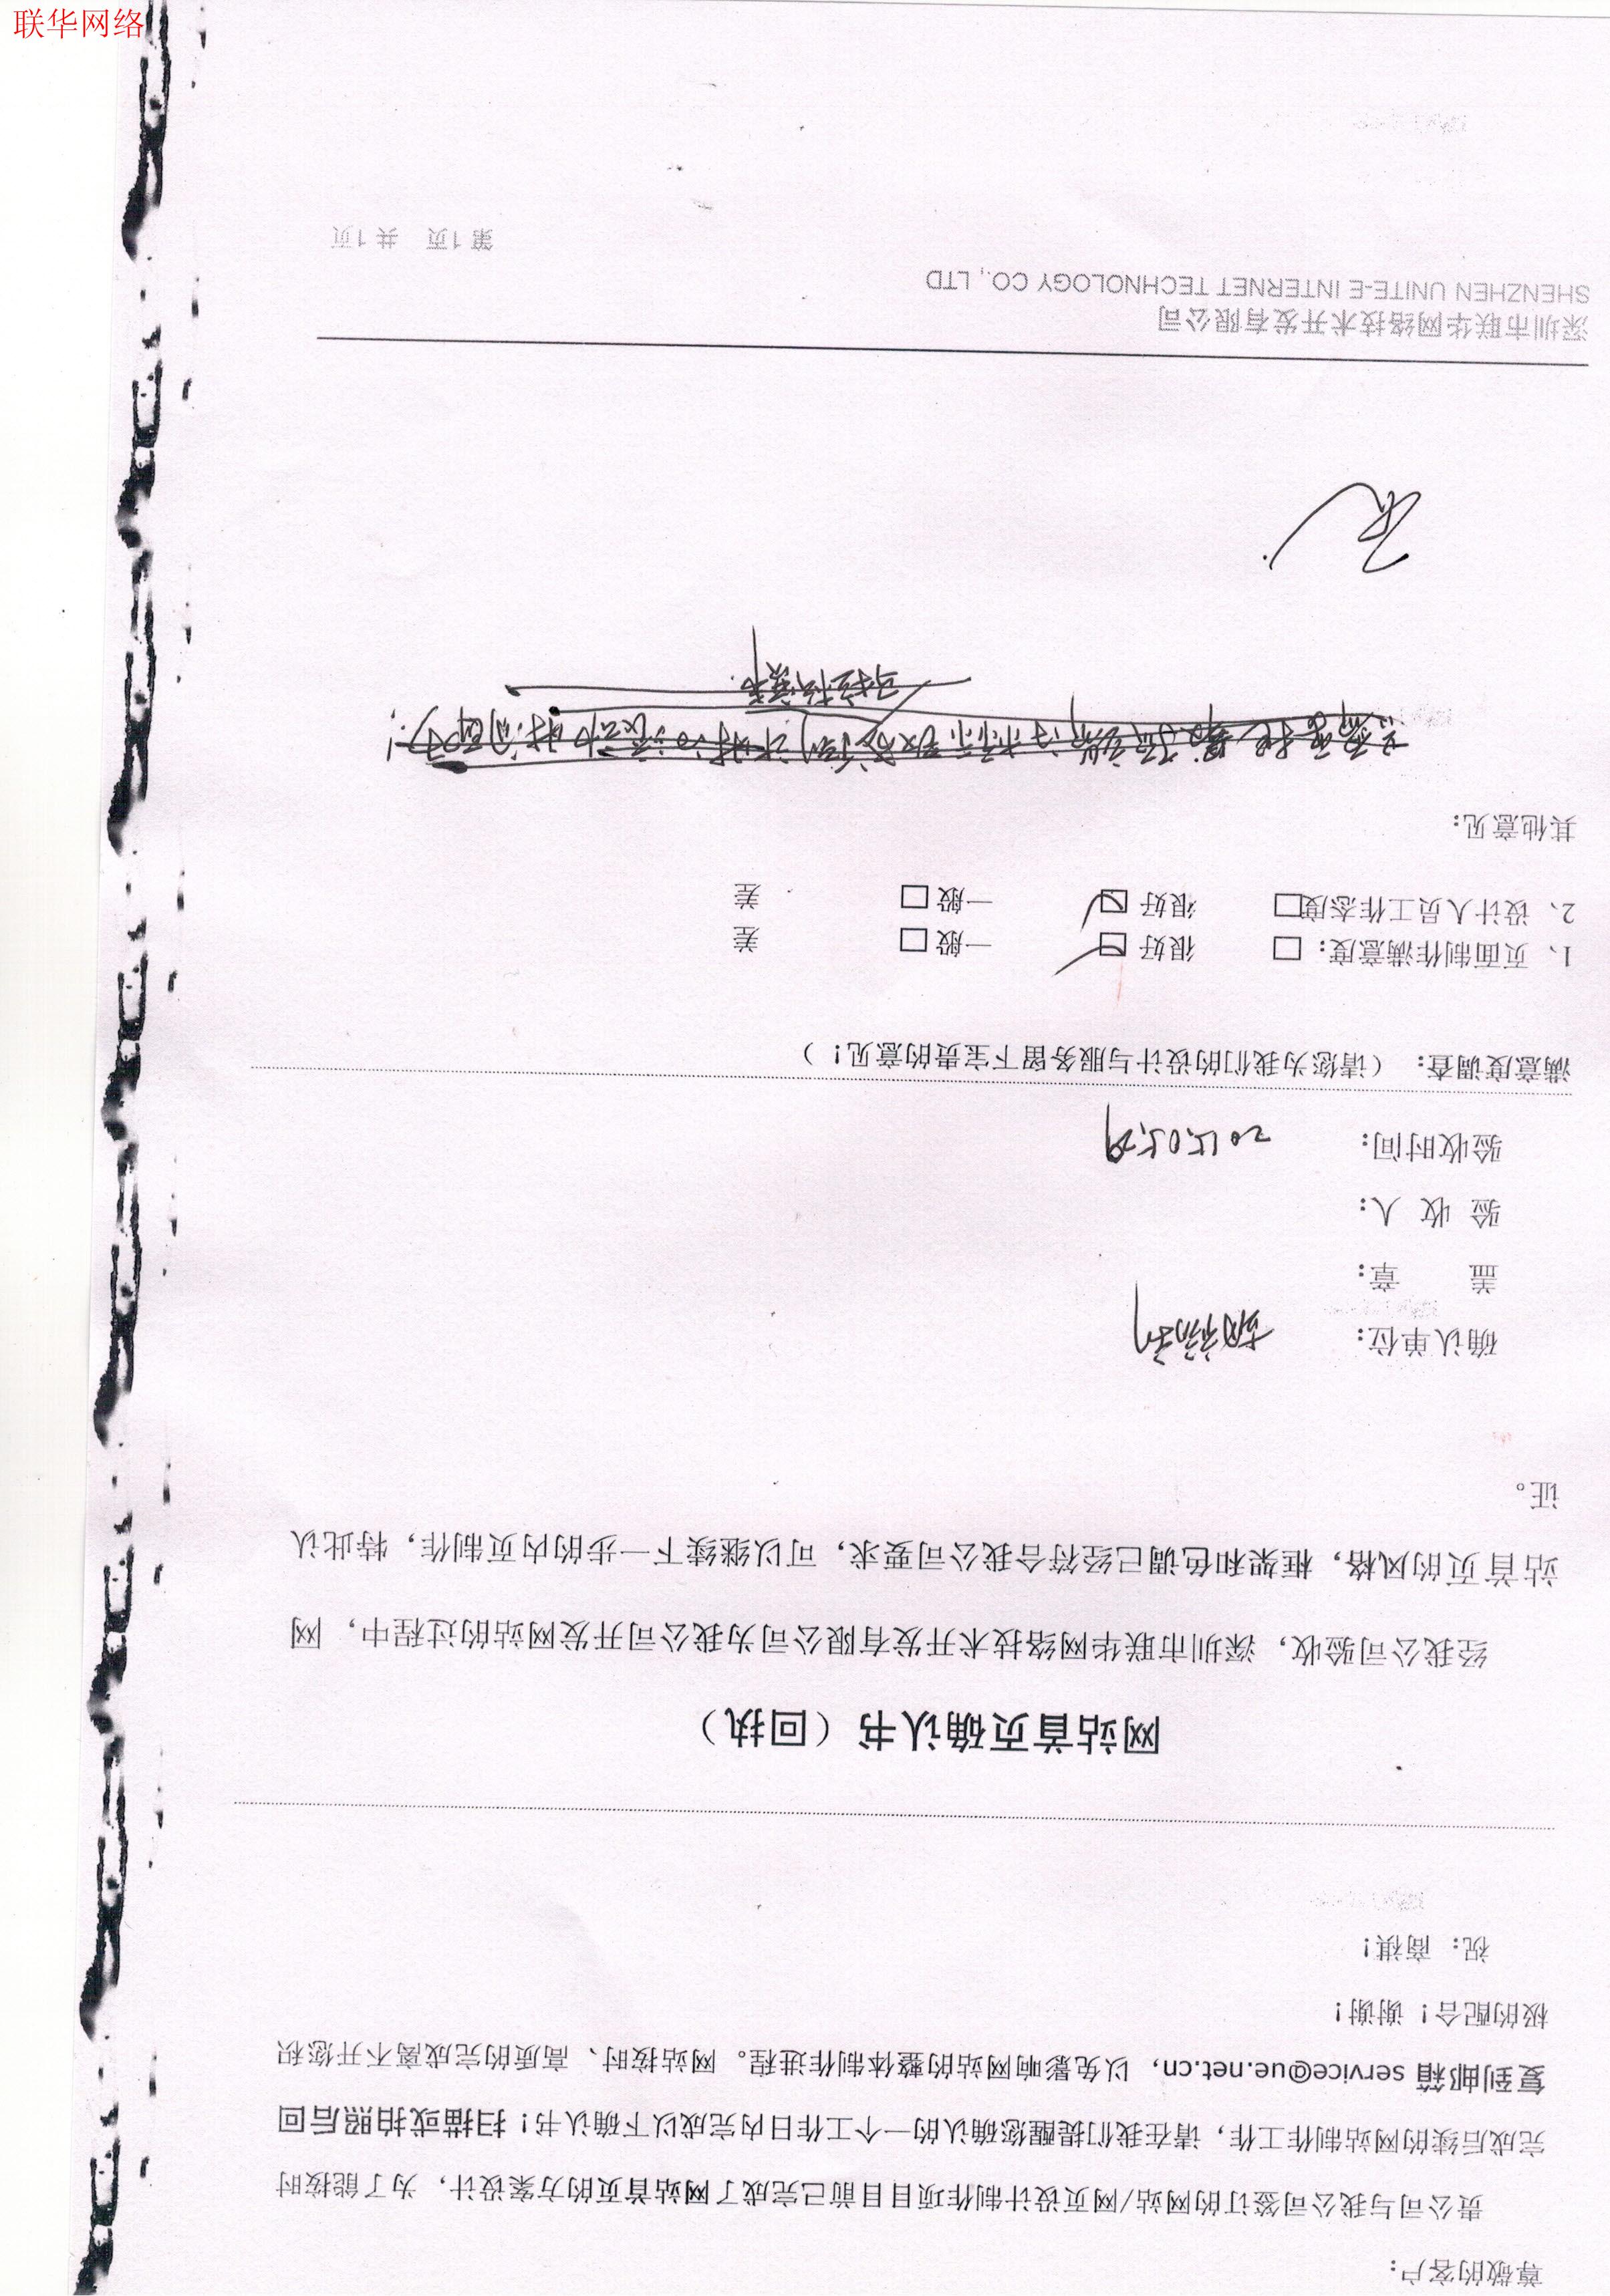 联华网络
尊敬的客户:
贵公司与我公司签订的网站/网页设计制作项目目前已完成了网站首页的方案设计，为了能按时
完成后续的网站制作工作，请在我们提醒您确认的一个工作日内完成以下确认书！扫描或拍照后回
复到邮箱 service@ue.net.cn，以免影响网站的整体制作进程。网站按时、高质的完成离不开您积
极的配合！谢谢！
祝：商祺！
网站首页确认书（回执）
经我公司验收，深圳市联华网络技术开发有限公司为我公司开发网站的过程中，网
站首页的风格，框架和色调已经符合我公司要求，可以继续下一步的内页制作，特此认
证。
确认单位:
盖 章:
验 收 人:
验收时间: 2015.05.29
满意度调查：（请您为我们的设计与服务留下宝贵的意见！）
1、页面制作满意度: □ 很好 ☑ 一般 □ 差
2、设计人员工作态度□ 很好 ☑ 一般 □ 差
其他意见:
深圳市联华网络技术开发有限公司
SHENZHEN UNITE-E INTERNET TECHNOLOGY CO., LTD
第 1 页 共 1 页